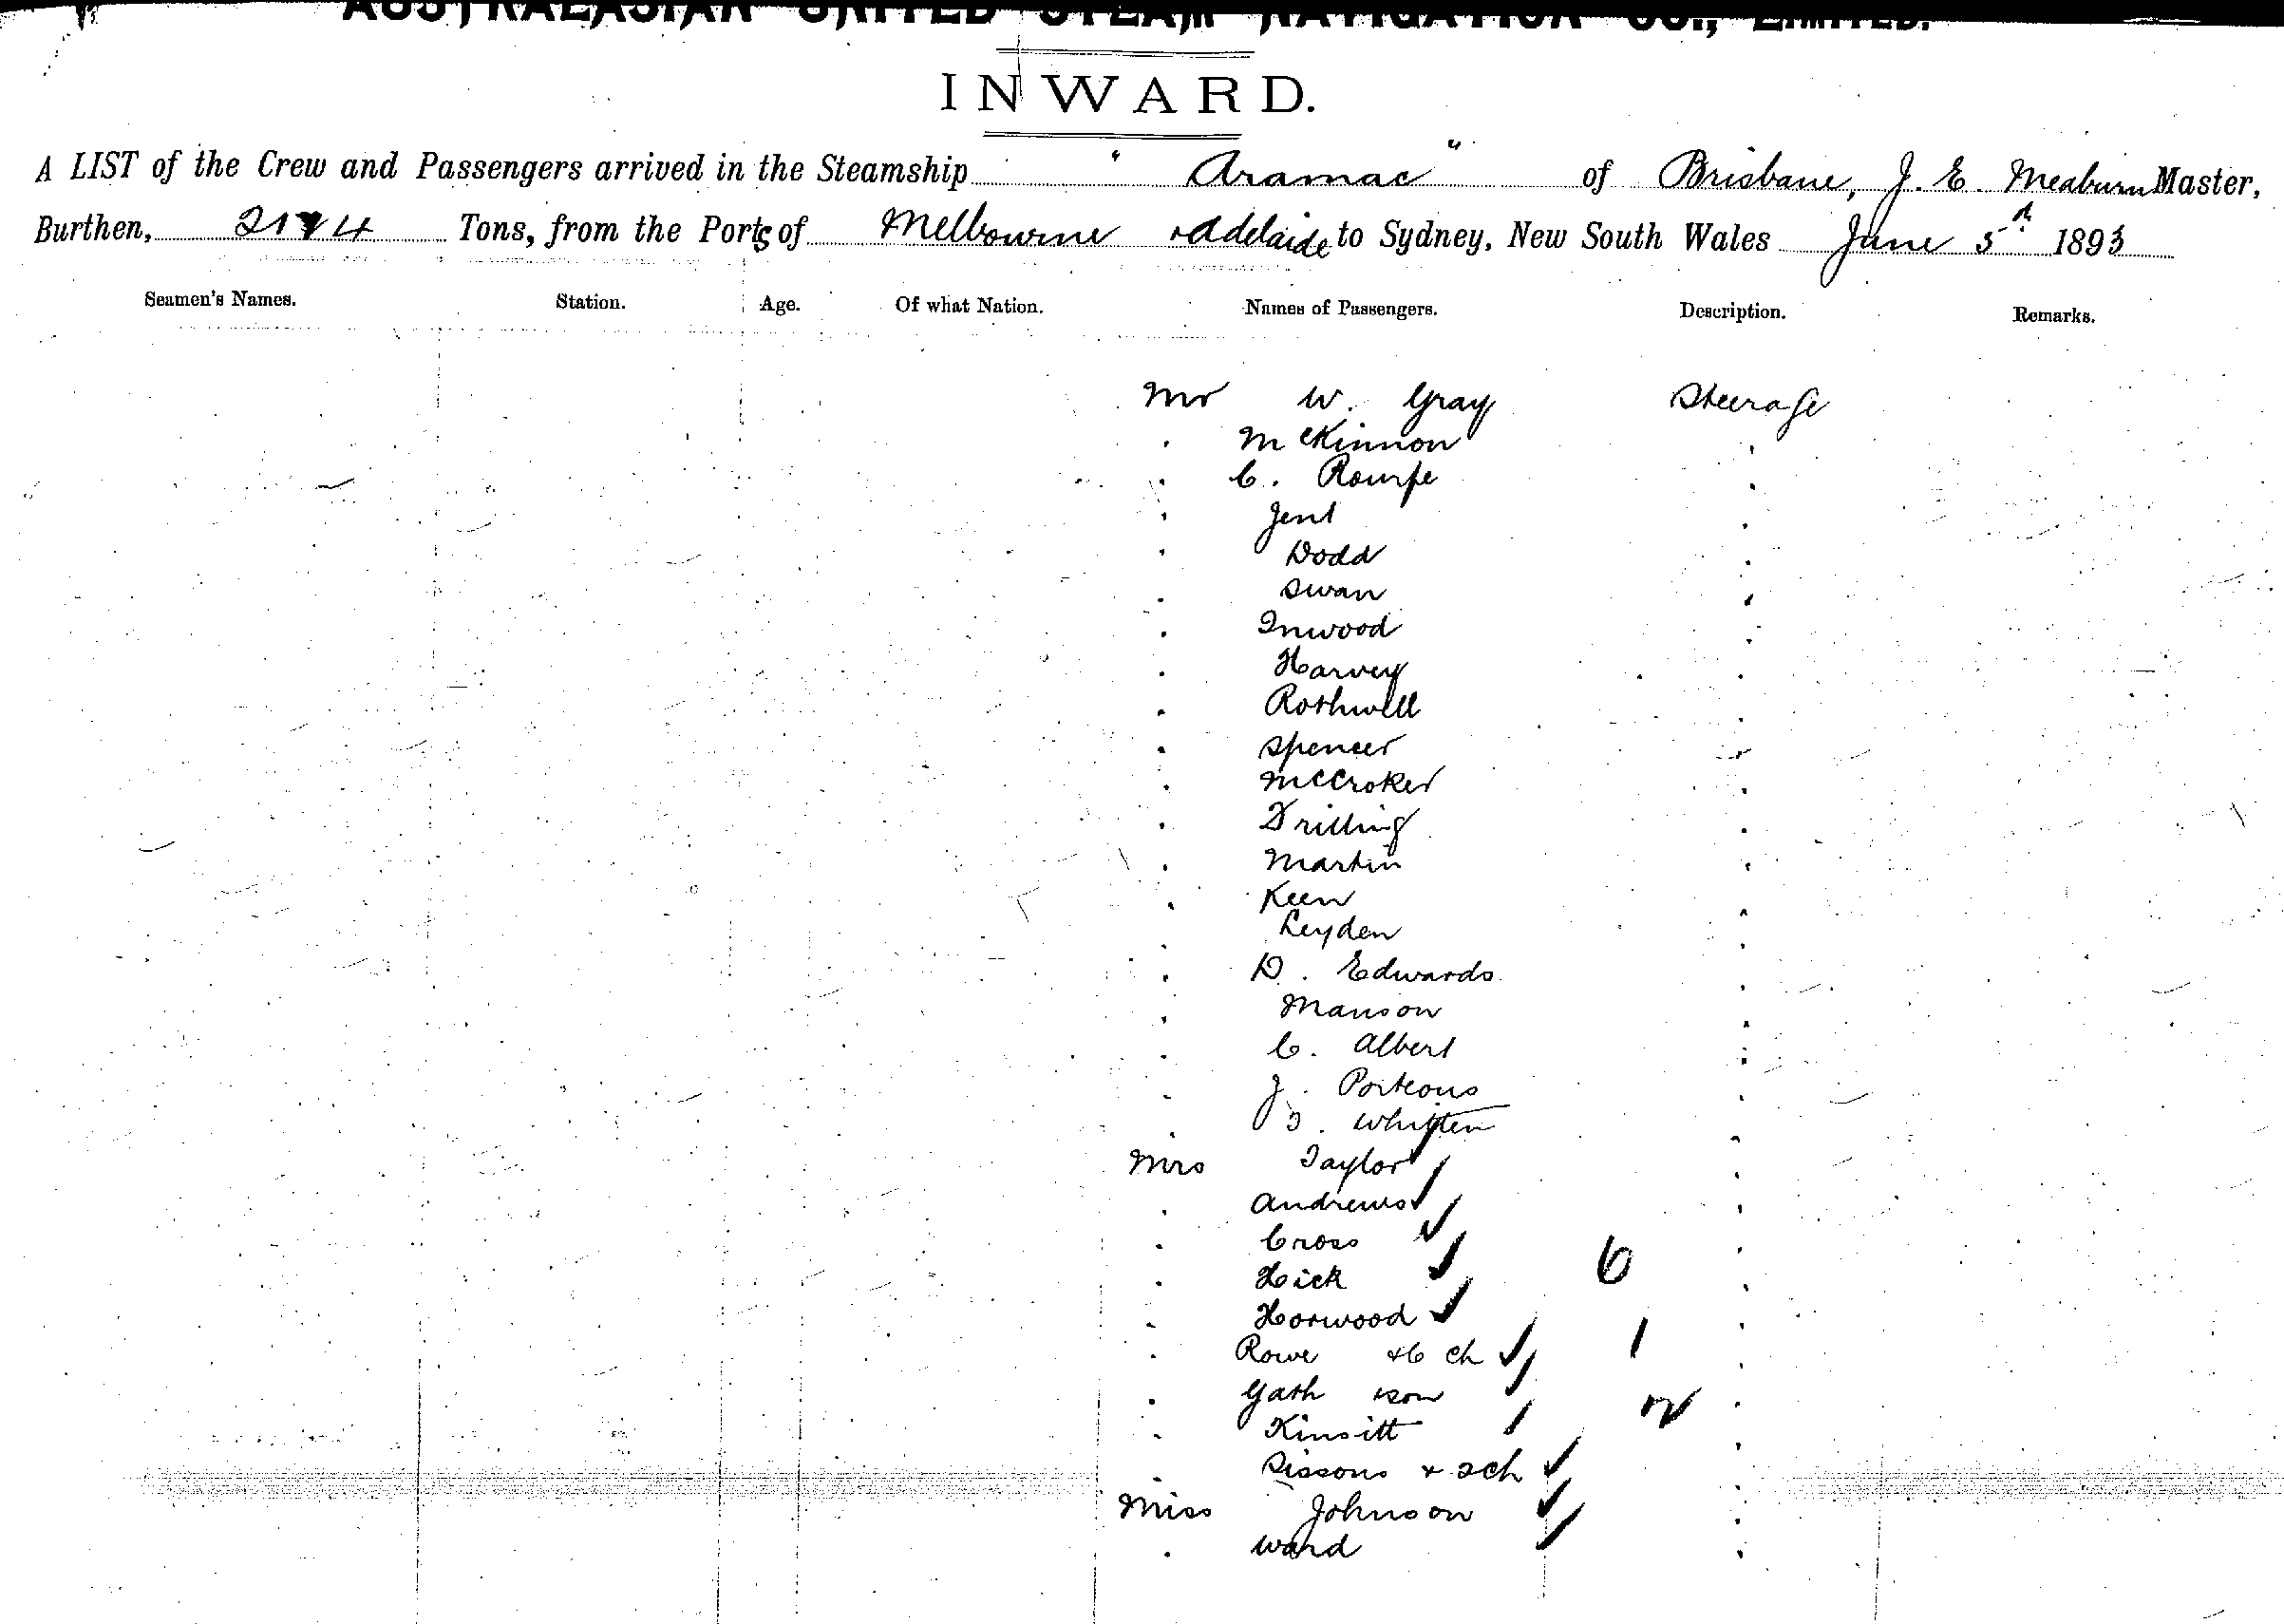 AUSTRALASIAN UNITED STEAM NAVIGATION CO., LIMITED.
INWARD.
A LIST of the Crew and Passengers arrived in the Steamship "Aramac" of Brisbane, J. E. Meaburn Master,
Burthen, 2114 Tons, from the Ports of Melbourne & Adelaide to Sydney, New South Wales June 5th 1893
Seamen's Names. Station. Age. Of what Nation. Names of Passengers. Description. Remarks.
Mr W. Gray Steerage
. McKinnon .
. C. Rourke .
. Jent .
. Dodd .
. Swan .
. Inwood .
. Harvey .
. Rothwell .
. Spencer .
. McCroker .
. Drilling .
. Martin .
. Keen .
. Leyden .
. D. Edwards .
. Manson .
. C. Albert .
. J. Porteous .
. J. Whitten .
Mrs Taylor .
. Andrews .
. Cross .
. Hick 6 .
. Horwood .
. Rowe & 6 ch 1
. Gath & son .
. Kinsitt .
. Sissons & 2 ch
Miss Johnson .
. Ward .